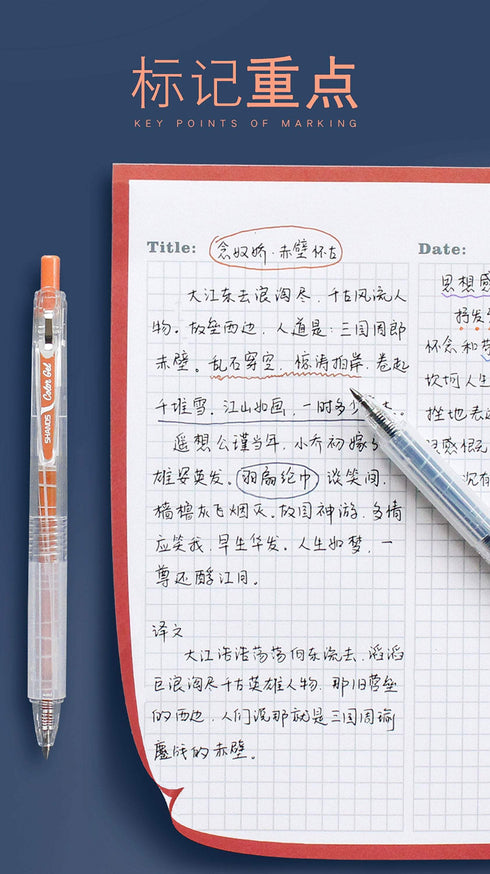 标记重点
KEY POINTS OF MARKING
Title: 念奴娇·赤壁怀古
大江东去浪淘尽,千古风流人
物。故垒西边,人道是:三国周郎
赤壁。乱石穿空,惊涛拍岸,卷起
千堆雪。江山如画,一时多少
遥想公瑾当年,小乔初嫁
雄姿英发。羽扇纶巾,谈笑间,
樯橹灰飞烟灭。故国神游,多情
应笑我,早生华发。人生如梦,一
尊还酹江月。
译文
大江浩浩荡荡向东流去,滔滔
巨浪淘尽千古英雄人物。那旧营垒
的西边,人们说那就是三国周瑜
鏖战的赤壁。
Date:
思想感
抒发
怀念和
坎坷人生
挫地
灵感
SHANDS Color Gel